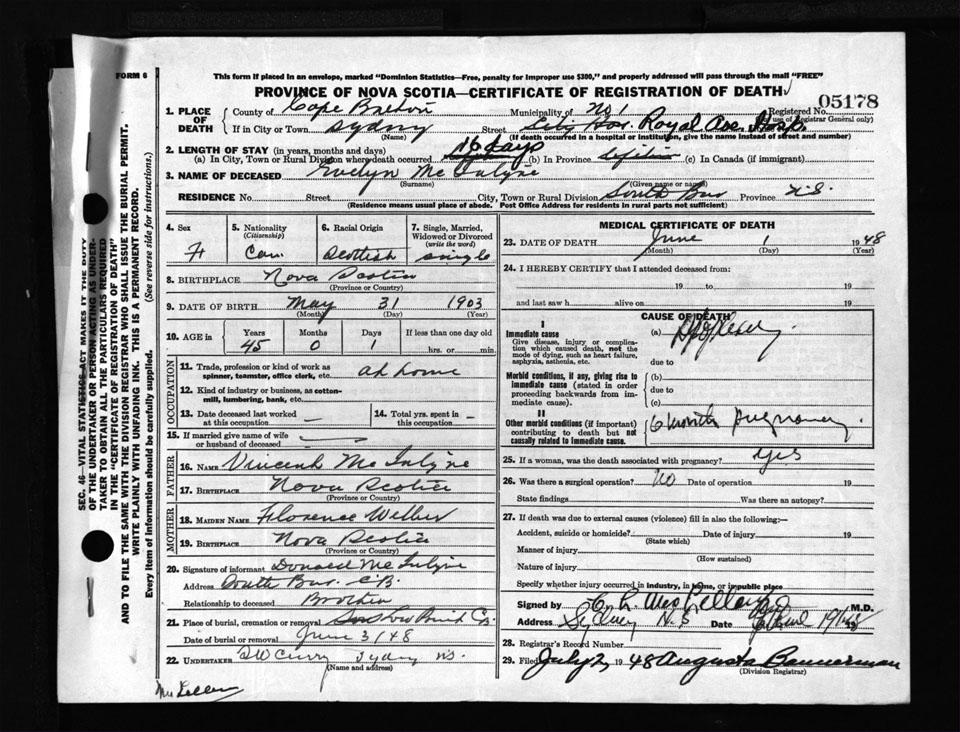 FORM 6
This form if placed in an envelope, marked "Dominion Statistics—Free, penalty for improper use $300," and properly addressed will pass through the mail "FREE"
PROVINCE OF NOVA SCOTIA—CERTIFICATE OF REGISTRATION OF DEATH
05178
1. PLACE OF DEATH
County of Cape Breton Municipality of No 1 Registered No.
(For use of Registrar General only)
If in City or Town Sydney Street Royal Ave. Hosp.
(If death occurred in a hospital or institution, give the name instead of street and number)
2. LENGTH OF STAY (in years, months and days)
(a) In City, Town or Rural Division where death occurred 16 days (b) In Province Lifetime (c) In Canada (if immigrant)
3. NAME OF DECEASED Evelyn Mc Intyre
(Surname) (Given name or names)
RESIDENCE No. Street City, Town or Rural Division South Bar Province N.S.
(Residence means usual place of abode. Post Office Address for residents in rural parts not sufficient)
4. Sex F
5. Nationality (Citizenship) Can.
6. Racial Origin Scottish
7. Single, Married, Widowed or Divorced (write the word) single
8. BIRTHPLACE Nova Scotia
(Province or Country)
9. DATE OF BIRTH May 31 1903
(Month) (Day) (Year)
10. AGE in Years 45 Months 0 Days 1 If less than one day old
hrs. or min.
OCCUPATION
11. Trade, profession or kind of work as spinner, teamster, office clerk, etc. at home
12. Kind of industry or business, as cotton-mill, lumbering, bank, etc.
13. Date deceased last worked at this occupation —
14. Total yrs. spent in this occupation —
15. If married give name of wife or husband of deceased —
FATHER
16. NAME Vincent Mc Intyre
17. BIRTHPLACE Nova Scotia
(Province or Country)
MOTHER
18. MAIDEN NAME Florence
19. BIRTHPLACE Nova Scotia
(Province or Country)
20. Signature of informant Donald Mc Intyre
Address South Bar C.B.
Relationship to deceased Brother
21. Place of burial, cremation or removal C.B.
Date of burial or removal June 3/48
22. UNDERTAKER Curry Sydney N.S.
(Name and address)
MEDICAL CERTIFICATE OF DEATH
23. DATE OF DEATH June 1 1948
(Month) (Day) (Year)
24. I HEREBY CERTIFY that I attended deceased from:
19 to 19
and last saw h alive on 19
CAUSE OF DEATH
I
Immediate cause (a)
Give disease, injury or complication which caused death, not the mode of dying, such as heart failure, asphyxia, asthenia, etc.
due to
Morbid conditions, if any, giving rise to immediate cause (stated in order proceeding backwards from immediate cause).
(b)
due to
(c)
II
Other morbid conditions (if important) contributing to death but not causally related to immediate cause.
6 months pregnancy.
25. If a woman, was the death associated with pregnancy? yes
26. Was there a surgical operation? No Date of operation 19
State findings Was there an autopsy?
27. If death was due to external causes (violence) fill in also the following:—
Accident, suicide or homicide? Date of injury 19
(State which)
Manner of injury
(How sustained)
Nature of injury
Specify whether injury occurred in industry, in home, or in public place
Signed by M.D.
Address Sydney N.S Date
28. Registrar's Record Number
29. Filed July 2 1948 Augusta Bannerman
(Division Registrar)
SEC. 46—VITAL STATISTICS ACT MAKES IT THE DUTY
OF THE UNDERTAKER OR PERSON ACTING AS UNDERTAKER TO OBTAIN ALL THE PARTICULARS REQUIRED
IN THE "CERTIFICATE OF REGISTRATION OF DEATH"
AND TO FILE THE SAME WITH THE DIVISION REGISTRAR WHO SHALL ISSUE THE BURIAL PERMIT.
WRITE PLAINLY WITH UNFADING INK. THIS IS A PERMANENT RECORD.
Every item of information should be carefully supplied. (See reverse side for instructions.)